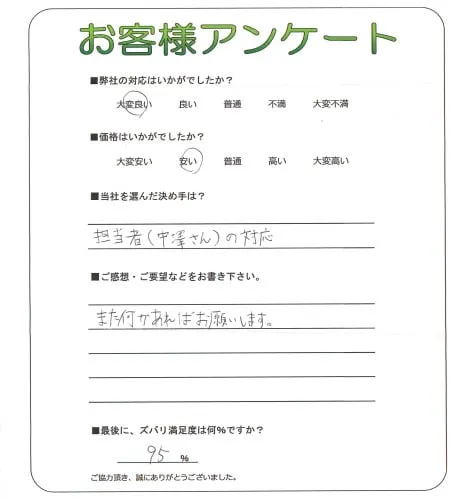 お客様アンケート
■弊社の対応はいかがでしたか？
大変良い 良い 普通 不満 大変不満
■価格はいかがでしたか？
大変安い 安い 普通 高い 大変高い
■当社を選んだ決め手は？
担当者(中澤さん)の対応
■ご感想・ご要望などをお書き下さい。
また何かあればお願いします。
■最後に、ズバリ満足度は何%ですか？
95 %
ご協力頂き、誠にありがとうございました。